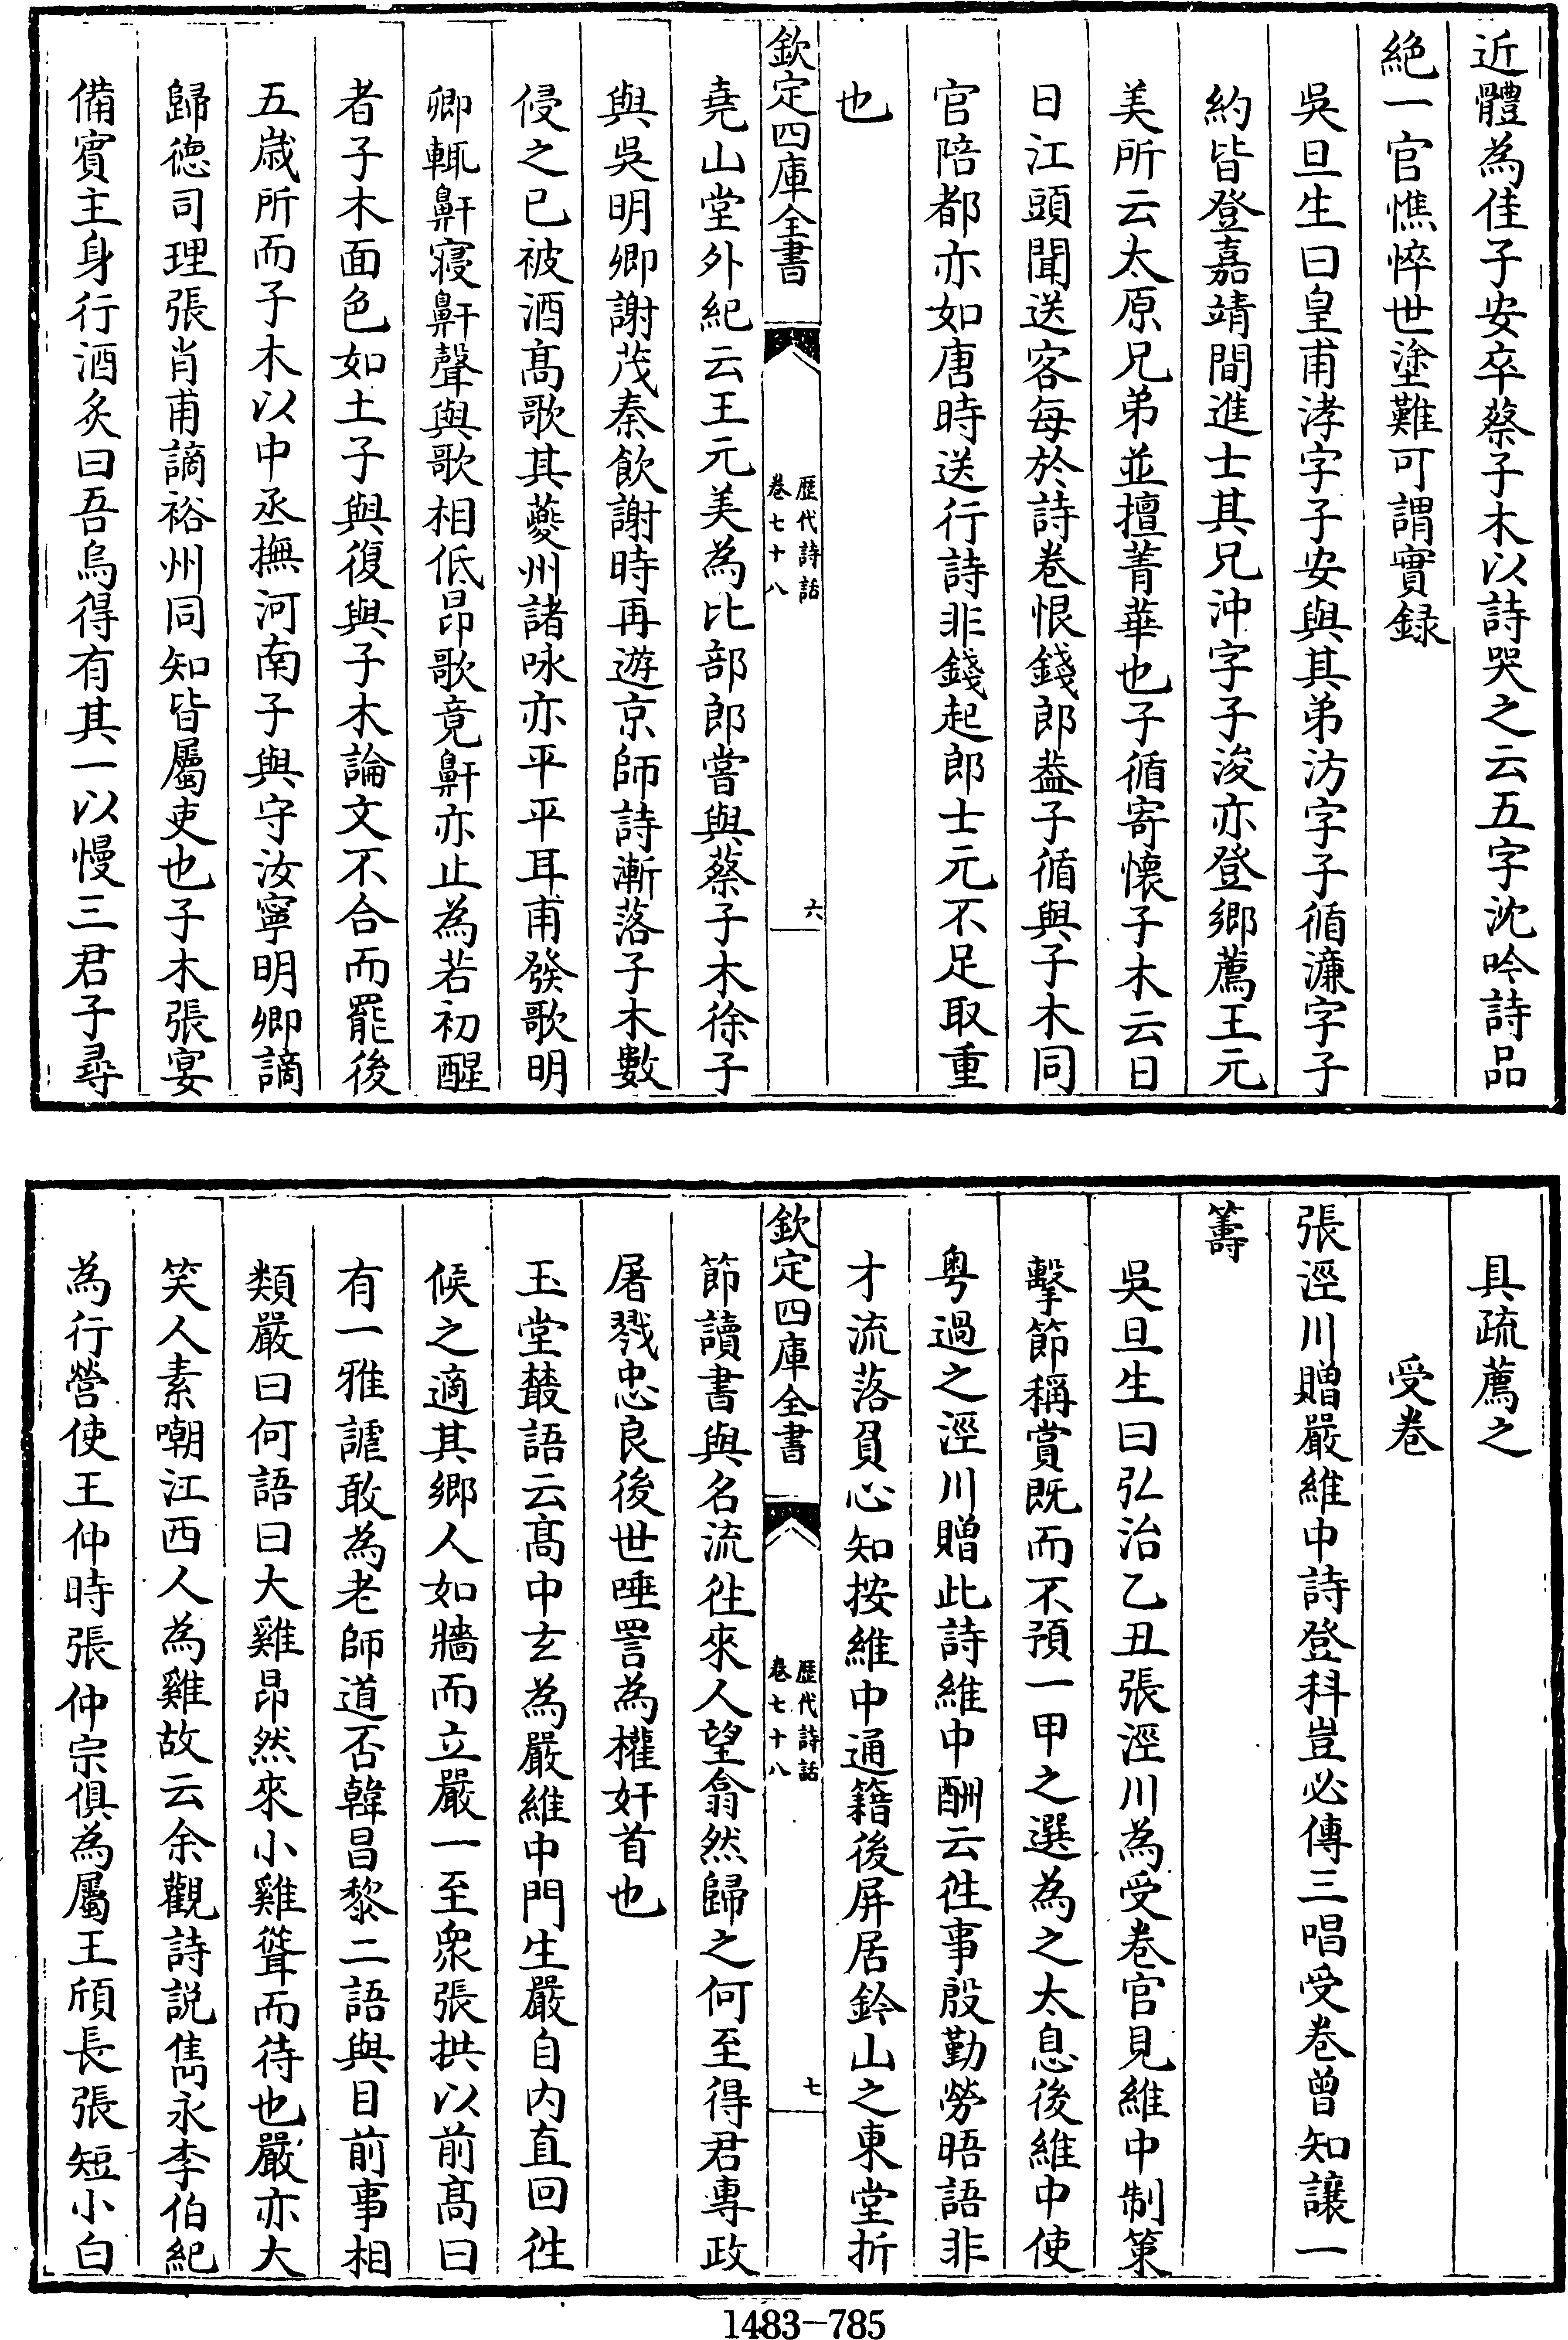 近體為佳子安卒蔡子木以詩哭之云五字沈吟詩品
絕一官憔悴世塗難可謂實録
吳旦生曰皇甫涍字子安與其弟汸字子循濂字子
約皆登嘉靖間進士其兄沖字子浚亦登鄉薦王元
美所云太原兄弟並擅菁華也子循寄懐子木云日
日江頭聞送客每於詩卷恨錢郎葢子循與子木同
官陪都亦如唐時送行詩非錢起郎士元不足取重
也
欽定四庫全書
歴代詩話
卷七十八
六
堯山堂外紀云王元美為比部郎嘗與蔡子木徐子
與吳明卿謝茂秦飲謝時再遊京師詩漸落子木數
侵之已被酒髙歌其夔州諸咏亦平平耳甫發歌明
卿輒鼾寢鼾聲與歌相低昂歌竟鼾亦止為若初醒
者子木面色如土子與復與子木論文不合而罷後
五歲所而子木以中丞撫河南子與守汝寧明卿謫
歸徳司理張肖甫謫裕州同知皆屬吏也子木張宴
備賓主身行酒炙曰吾烏得有其一以慢三君子尋
具疏薦之
受卷
張涇川贈嚴維中詩登科豈必傳三唱受卷曾知讓一
籌
吳旦生曰弘治乙丑張涇川為受卷官見維中制策
擊節稱賞既而不預一甲之選為之太息後維中使
粤過之涇川贈此詩維中酬云徃事殷勤勞晤語非
才流落負心知按維中通籍後屏居鈐山之東堂折
欽定四庫全書
歴代詩話
卷七十八
七
節讀書與名流徃來人望翕然歸之何至得君專政
屠戮忠良後世唾詈為權奸首也
玉堂叢語云髙中玄為嚴維中門生嚴自内直回徃
候之適其鄉人如牆而立嚴一至衆張拱以前髙曰
有一雅謔敢為老師道否韓昌黎二語與目前事相
類嚴曰何語曰大雞昂然來小雞聳而待也嚴亦大
笑人素嘲江西人為雞故云余觀詩説雋永李伯紀
為行營使王仲時張仲宗俱為屬王頎長張短小白
1483-785